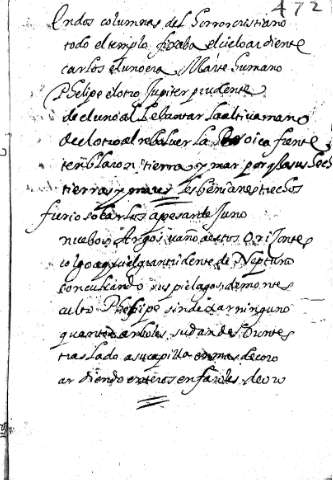 472
En dos columnas del fervor cristiano
todo el templo fixaba el cielo ardiente
carlos el uno era Marte humano
Phelipe el otro Jupiter prudente
de el uno al lebantar la altiva mano
de el otro al rebolver la eroica frente
temblaron tierra y mar porque a sus
tierras y mares les benian estrechos
furioso carlos a pesar de Juno
nuebos Argos vaño a estos Oriontes
colgo aquel gran tridente de Neptuno
conculcando sus pielagos de montes
culto Phelipe sin dexar ninguno
quantos arboles sudan des Orontes
traslado a su capilla en mas decoro
ardiendo enteros en faroles de oro